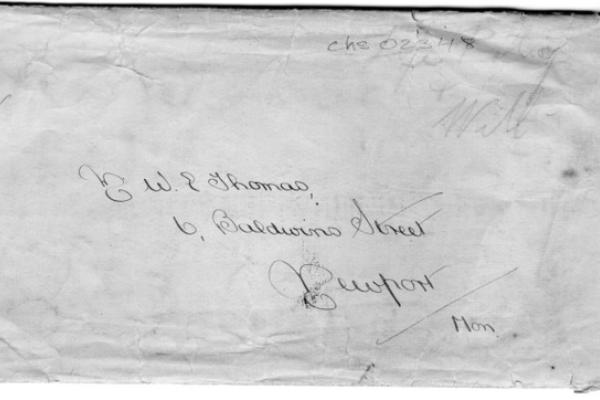 chs 02348
Will
Mr W. E Thomas,
6, Baldwins Street
Newport
Mon.